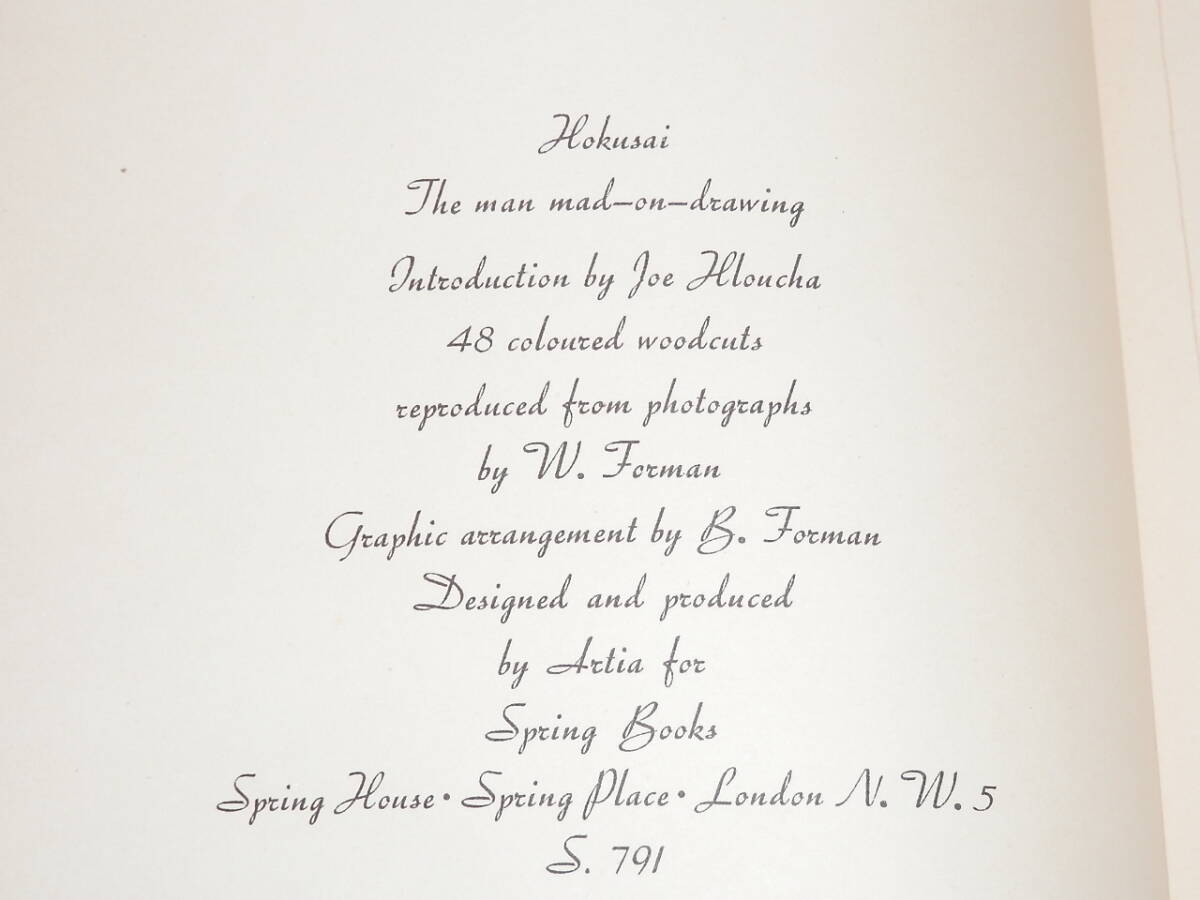 Hokusai
The man mad–on–drawing
Introduction by Joe Hloucha
48 coloured woodcuts
reproduced from photographs
by W. Forman
Graphic arrangement by B. Forman
Designed and produced
by Artia for
Spring Books
Spring House • Spring Place • London N. W. 5
S. 791